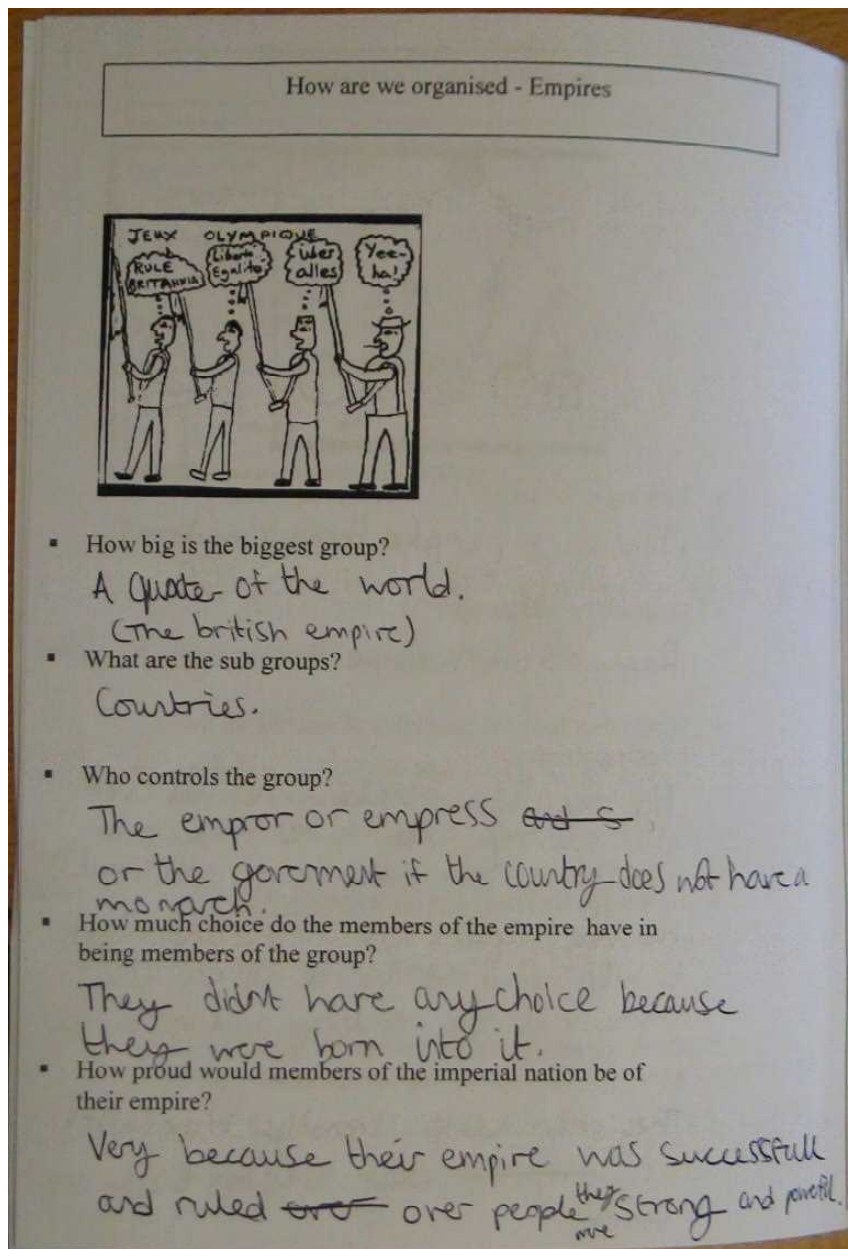 How are we organised - Empires
JEUX OLYMPIQUE
RULE BRITANNIA
Liberte Egalite
über alles
Yee-ha!
▪ How big is the biggest group?
A Quater of the world.
(The british empire)
▪ What are the sub groups?
Countries.
▪ Who controls the group?
The empror or empress and s
or the goverment if the country does not have a
monarch.
▪ How much choice do the members of the empire have in
being members of the group?
They didnt have any choice because
they were born into it.
▪ How proud would members of the imperial nation be of
their empire?
Very because their empire was successfull
and ruled over over people they were strong and powerful.